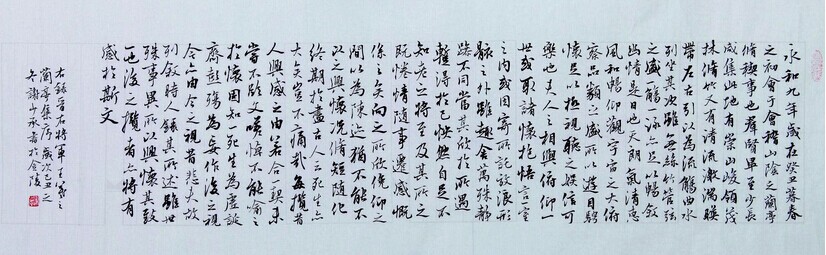 永和九年歲在癸丑暮春
之初會于會稽山陰之蘭亭
脩稧事也群賢畢至少長
咸集此地有崇山峻領茂
林脩竹又有清流激湍暎
帶左右引以為流觴曲水
列坐其次雖無絲竹管弦
之盛一觴一詠亦足以暢敘
幽情是日也天朗氣清惠
風和暢仰觀宇宙之大俯
察品類之盛所以遊目騁
懷足以極視聽之娛信可
樂也夫人之相與俯仰一
世或取諸懷抱悟言一室
之內或因寄所託放浪形
骸之外雖趣舍萬殊靜
躁不同當其欣於所遇
蹔得於己怏然自足不
知老之將至及其所之
既惓情隨事遷感慨
係之矣向之所欣俛仰之
間以為陳迹猶不能不
以之興懷況脩短隨化
終期於盡古人云死生亦
大矣豈不痛哉每攬昔
人興感之由若合一契未
嘗不臨文嗟悼不能喻之
於懷固知一死生為虛誕
齊彭殤為妄作後之視
今亦由今之視昔悲夫故
列敘時人錄其所述雖世
殊事異所以興懷其致
一也後之攬者亦將有
感於斯文
右錄晉右將軍王羲之
蘭亭集序歲次己丑之
冬謝少承書於金陵